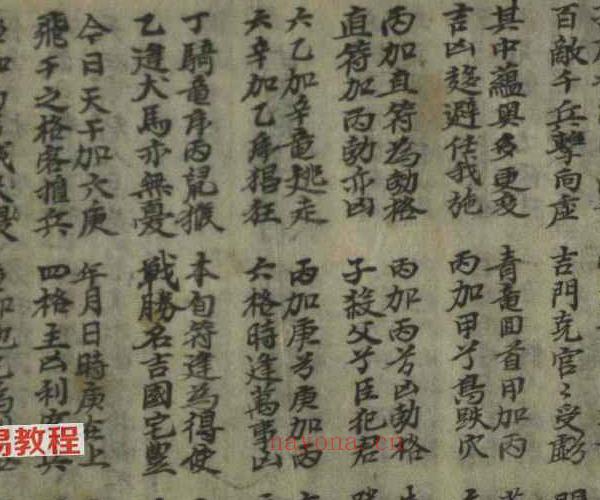 百敵千兵擊向虛
吉門克官〻受
其中蘊奧多更变
吉凶趨避任我施
青竜囬首甲加丙
丙加甲兮鳥跌穴
丙加直符為勃格
直符加丙勃亦凶
丙加丙兮凶勃格
子殺父兮臣犯君
六乙加辛竜逃走
六辛加乙虎猖狂
丙加庚兮庚加丙
六格時逢萬事凶
丁騎竜虎丙鼠猴
乙逢犬馬亦無憂
本旬符逢為得使
戰勝名吉國宅豐
今日天干加六庚
飛干之格客擅兵
年月日時庚在上
四格主凶利
易教程
nayona.cn